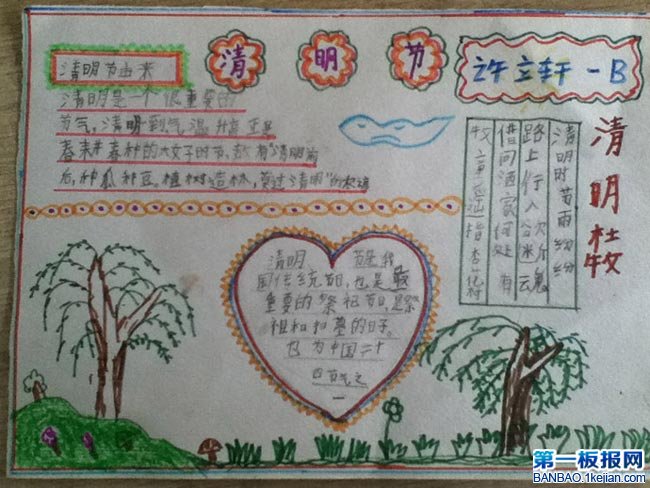 清明节
许立轩一B
清明节由来
清明是一个很重要的
节气,清明到气温升高正是
春耕春种的大好时节,故有"清明前
后,种瓜种豆。植树造林,莫过清明"的农谚
清明杜牧
清明时节雨纷纷
路上行人欲断魂
借问酒家何处有
牧童遥指杏花村
清明节是我
国传统节,也是最
重要的祭祀节日,是祭
祖和扫墓的日子。
也为中国二十
四节气之
一
第一板报网
BANBAO.1kejian.com